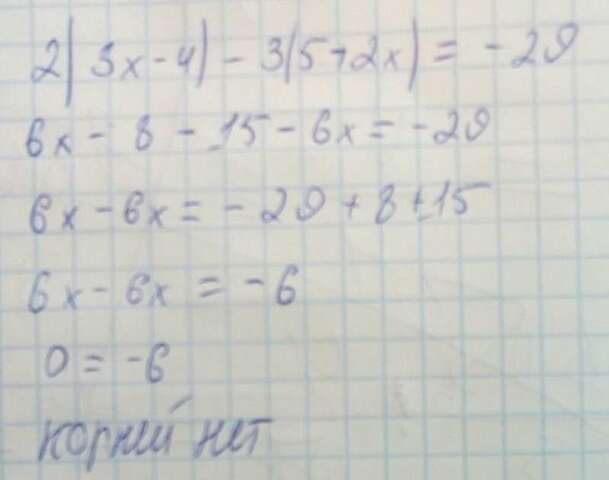 2(3x-4)-3(5+2x)=-29
6x-8-15-6x=-29
6x-6x=-29+8+15
6x-6x=-6
0=-6
корней нет